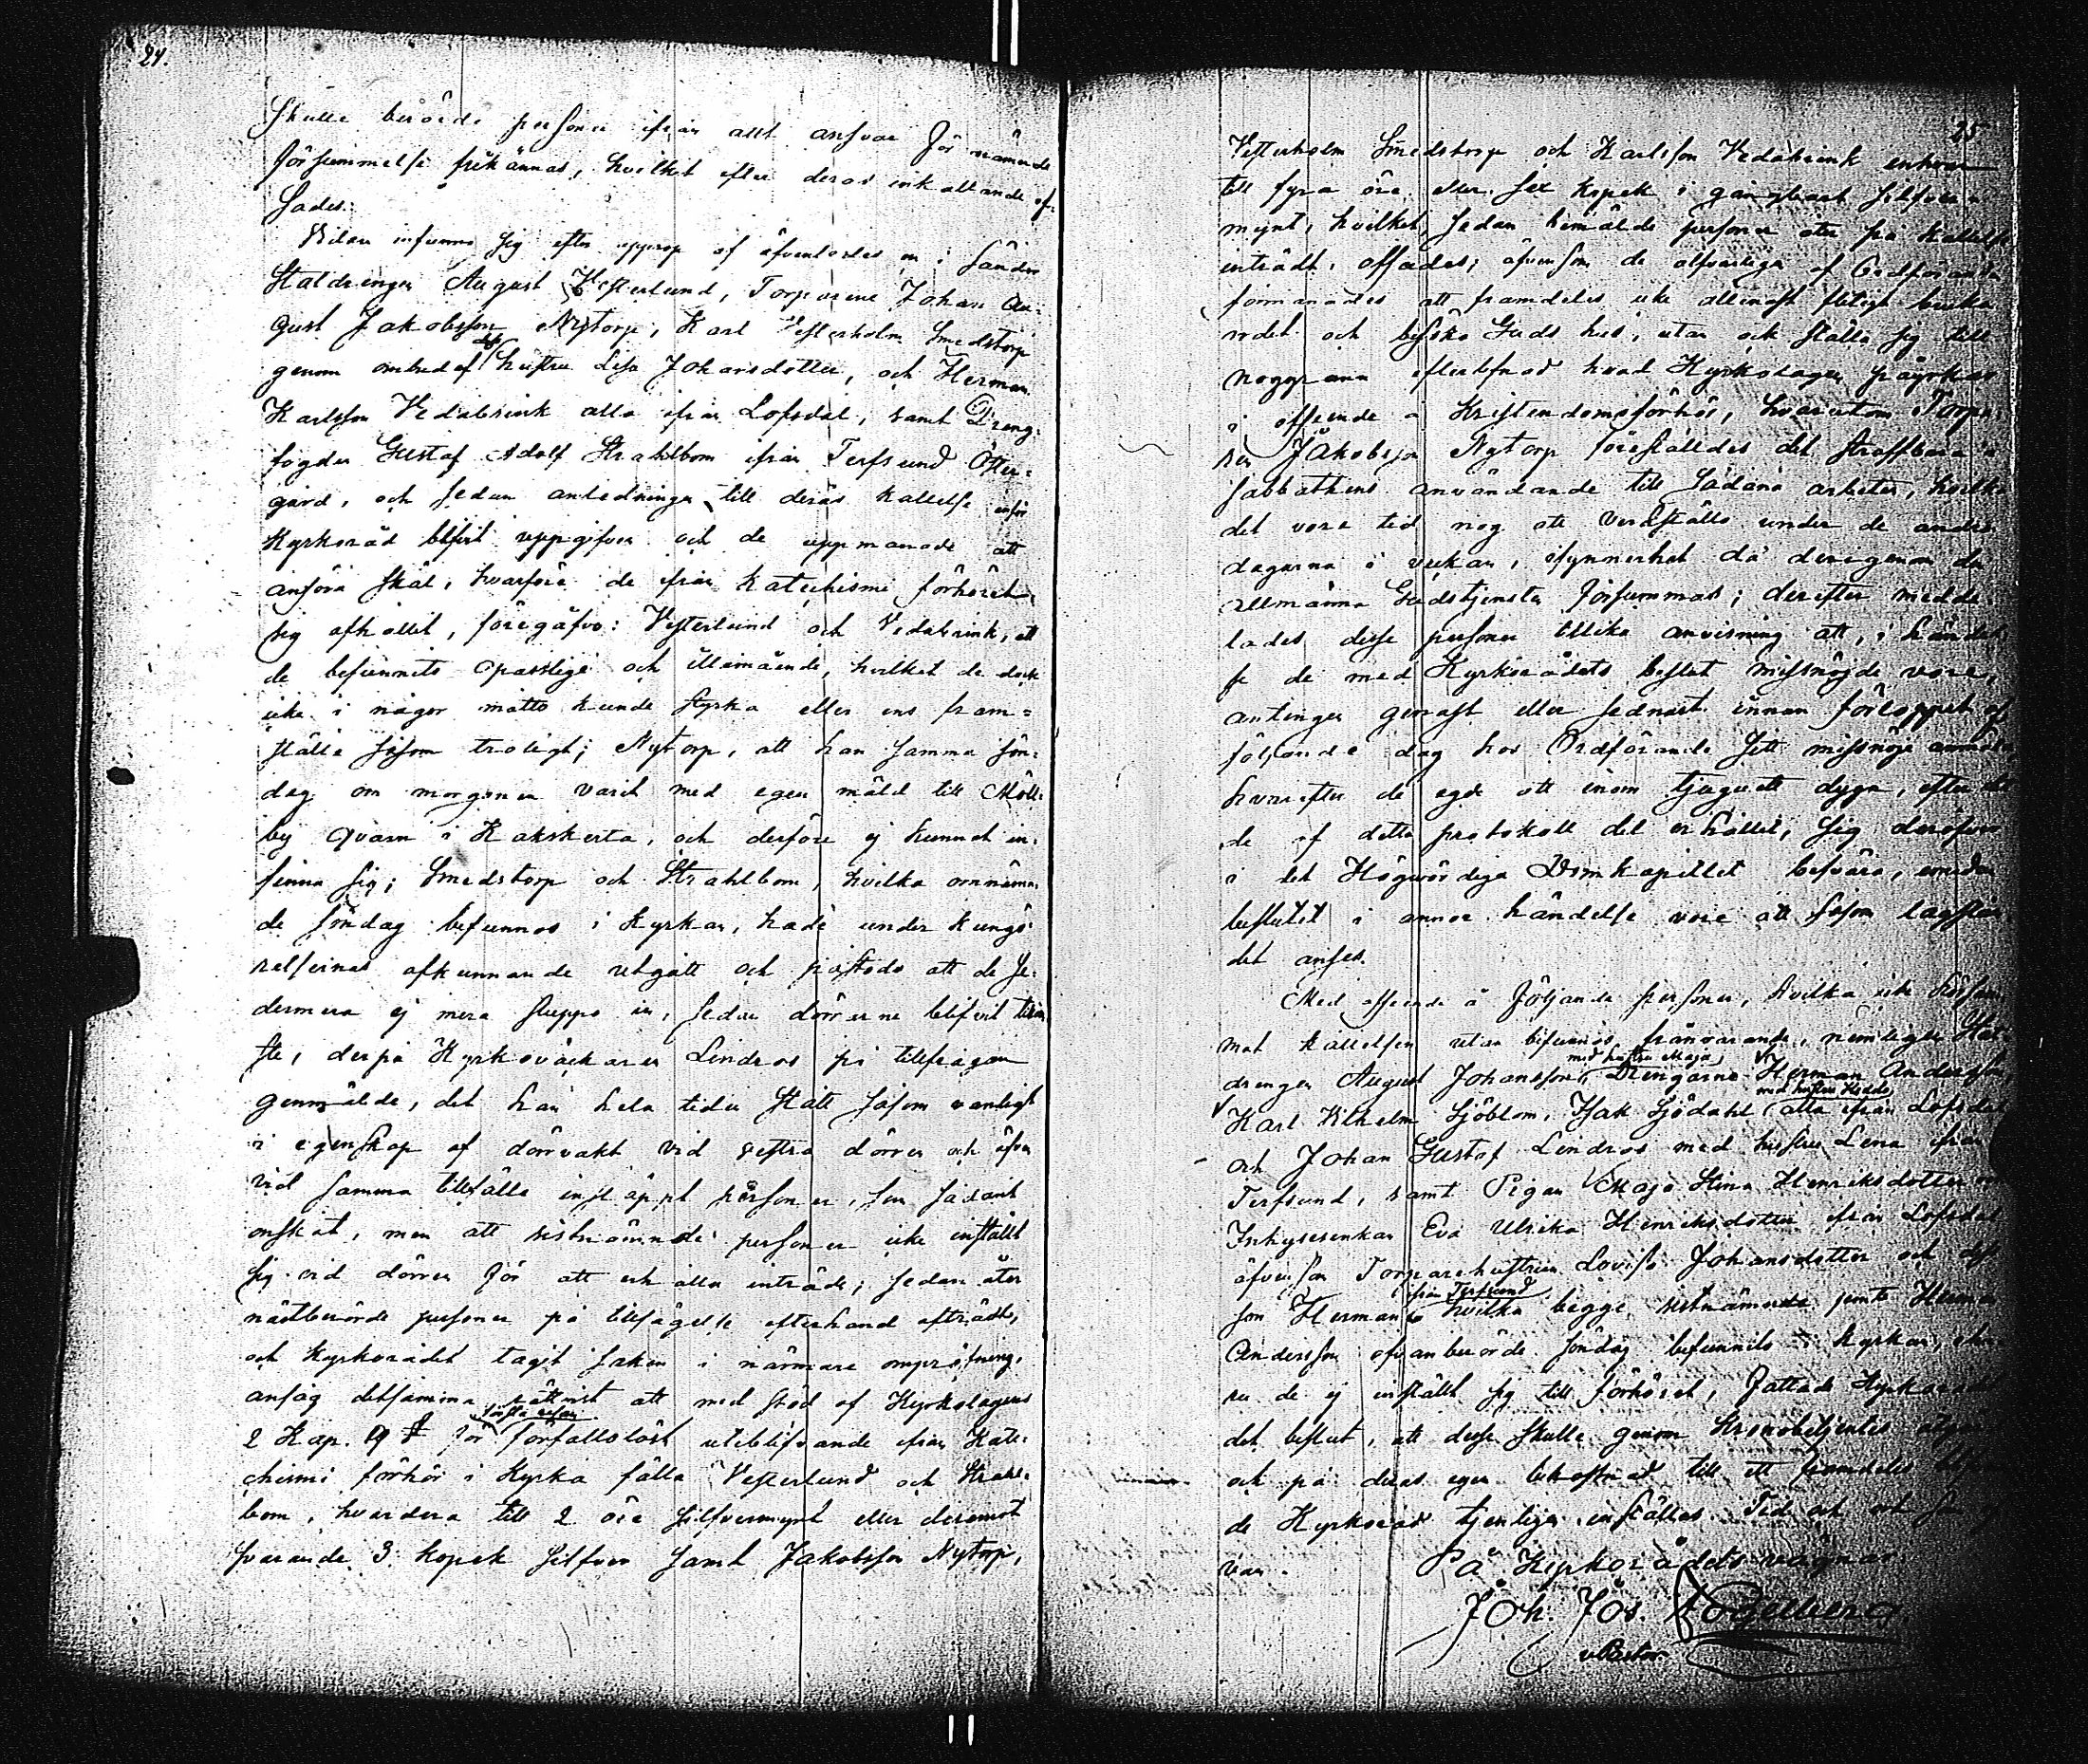 24.
Skulle berörde personer ifrån allt ansvar för nämnde
försummelse frikännas, hvilket efter deras inkallande af-
sades.
Vidare infunno sig efter upprop af åfventortes en i sänder
Statdrengen August Vesterlund, Torparene Johan Au-
gust Jakobsson Nytorp, Karl Vesterholm Smedstorp
genom ombud af dess hustru Lisa Johansdotter, och Herman
Karlsson Vedabrink alla ifrån Lofsdal, samt Dreng-
fogden Gustaf Adolf Strahlbom ifrån Terfsund Öster-
gård, och sedan anledningen till deras kallelse inför
Kyrkoråd blifvit uppgifven och de uppmanade att
anföra skäl, hvarföre de från katechismi förhöret
sig afhållit, föregåfvo: Vesterlund och Vedabrink, att
de befunnits opasslige och illamående, hvilket de dock
icke i någon måtto kunde styrka eller ens fram-
ställa såsom troligt; Nytorp, att han samma sön-
dag om morgonen varit med egen mäld till Möll-
by qvarn i Kakskerta, och derföre ej kunnat in-
finna sig; Smedstorp och Strahlbom, hvilka omnämn-
de söndag befunnos i kyrkan, hade under kungö-
relsernas afkunnande utgått och påstodo att de se-
dermera ej mera sluppo in, sedan dörrarne blifvit till-
ste, derpå Kyrkoväckaren Lindros på tillfrågan
genmälde, det han hela tiden stått såsom vanligt
i egenskap af dörrvakt vid vestra dörren och äfven
vid samma tillfälle insläppt personer, som sådant
önskat, men att sistnämnde personer icke inställt
sig vid dörren för att erhålla inträde; sedan åter
nästberörde personer på tillsägelse efterhand afträdt,
och Kyrkorådet tagit saken i närmare ompröfning,
ansåg detsamma rättvist att med stöd af Kyrkolagens
2 Kap. 19 § för första resan förfallolöst uteblifvande ifrån Kate-
chismi förhör i Kyrka fälla Vesterlund och Strahl-
bom, hvardera till 2 öre silfvermynt eller deremot
svarande 3 kopek silfver samt Jakobsson Nytorp,
25
Vesterholm Smedstorp och Karlsson Vedabrink enhvar
till fyra öre eller sex kopek i gångbart silfver-
mynt, hvilket, sedan bemälde personer åter på kallelse
inträdt, afsades; äfvensom de alfvarligen af Ordföranden
förmanades att framdeles icke allenast flitigt bruka
ordet och besöka Guds hus, utan ock ställa sig till
noggrann efterlefnad hvad Kyrkolagen påyrkar
i afseende å Kristendomsförhör, hvarutom Torpa-
ren Jakobsson Nytorp föreställdes det straffbara i
sabbathens användande till sådana arbeten, hvilka
det vore tid nog att verkställa under de andra
dagarna i veckan, isynnerhet då derigenom den
allmänna Gudstjensten försummas; derefter medde-
lades desse personer tillika anvisning att, i händel-
se de med Kyrkorådets beslut missnöjde vore,
antingen genast eller sednast innan förloppet af
följande dag hos Ordförande sitt missnöje anmäla
hvarefter de ega att inom tjuguett dygn, efter det
de af detta protokoll del erhållit, sig deröfver
i det Högvördiga Domkapitlet besvära, emedan
beslutet i annor händelse vore att såsom lagstån-
det anses.
Med afseende å följande personer, hvilka icke hörsam-
mat kallelsen utan befunnos frånvarande, nemligen Stat-
drengen August Johansson, med hustru Maja, Drengarne Herman Andersson,
Karl Vilhelm Sjöblom, Isak Sjödahl med hustru Hedda alla ifrån Lofsdal
och Johan Gustaf Lindros med hustru Lena ifrån
Terfsund, samt Pigan Maja Stina Henriksdotter och
Inhysesenkan Eva Ulrika Henriksdotter ifrån Lofsdal
äfvensom Torparehustrun Lovisa Johansdotter och dess
son Herman ifrån Terfsund hvilka begge sistnämnde jemte Herman
Andersson ofvanberörde söndag befunnits i kyrkan, ehu-
ru de ej inställt sig till förhöret, fattade Kyrkorå-
det beslut, att desse skulle genom Kronobetjentes
och på deras egen bekostnad till ett framdeles
de Kyrkoråd tjenligen inställas. Tid och ort som
van.
På Kyrkorådets vägnar
Joh. Jos. Fogelberg
v.Pastor